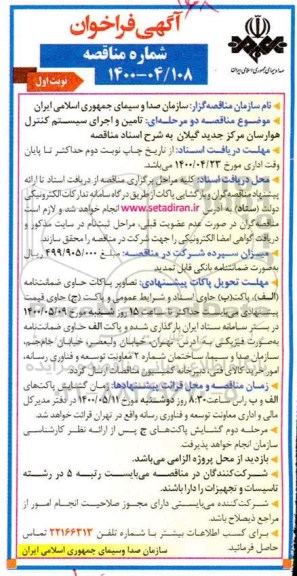 آگهی فراخوان
شماره مناقصه
۱۴۰۰-۰۴/۱۰۸
نوبت اول
صدا و سیمای جمهوری اسلامی ایران
نام سازمان مناقصه‌گزار: سازمان صدا و سیمای جمهوری اسلامی ایران
موضوع مناقصه دو مرحله‌ای: تامین و اجرای سیستم کنترل
هوارسان مرکز جدید گیلان به شرح اسناد مناقصه
مهلت دریافت اسناد: از تاریخ چاپ نوبت دوم حداکثر تا پایان
وقت اداری مورخ ۱۴۰۰/۰۴/۲۳ می‌باشد.
محل دریافت اسناد: کلیه مراحل برگزاری مناقصه از دریافت اسناد تا ارائه
پیشنهاد مناقصه‌گران و بازگشایی پاکات از طریق درگاه سامانه تدارکات الکترونیکی
دولت (ستاد) به آدرس www.setadiran.ir انجام خواهد شد و لازم است
مناقصه‌گران در صورت عدم عضویت قبلی، مراحل ثبت‌نام در سایت مذکور و
دریافت گواهی امضا الکترونیکی را جهت شرکت در مناقصه را محقق سازند.
میزان سپرده شرکت در مناقصه: مبلغ ۴۹۹/۹۰۵/۰۰۰ ریال
به‌صورت ضمانتنامه بانکی قابل تمدید
مهلت تحویل پاکات پیشنهادی: تصاویر پاکات حاوی ضمانت‌نامه
(الف)، پاکت(ب) حاوی اسناد و شرایط عمومی و پاکت (ج) حاوی قیمت
پیشنهادی می‌بایست حداکثر تا ساعت ۱۵ روز شنبه مورخ ۱۴۰۰/۰۵/۰۹
در بستر سامانه ستاد ایران بارگذاری شده و پاکت الف حاوی ضمانت‌نامه
به‌صورت فیزیکی نیز به آدرس: تهران، خیابان ولیعصر، خیابان جام‌جم،
سازمان صدا و سیما، ساختمان شماره ۲ معاونت توسعه و فناوری رسانه،
امور خرید کالای فنی، دبیرخانه کمیسیون مناقصات ارسال گردد.
زمان مناقصه و محل قرائت پیشنهادها: زمان گشایش پاکت‌های
الف و ب راس ساعت ۸:۳۰ روز دوشنبه مورخ ۱۴۰۰/۰۵/۱۱ در دفتر مدیرکل
مالی و اداری معاونت توسعه و فناوری رسانه واقع در تهران قرائت خواهد شد.
مرحله دوم گشایش پاکت‌های ج پس از ارائه نظر کارشناسی
سازمان انجام خواهد پذیرفت.
بازدید از محل پروژه الزامی می‌باشد.
شرکت‌کنندگان در مناقصه می‌بایست رتبه ۵ در رشته
تاسیسات و تجهیزات را دارا باشند.
شرکت‌کننده می‌بایستی دارای مجوز صلاحیت انجام امور از
مراجع ذیصلاح باشد.
برای کسب اطلاعات بیشتر با شماره تلفن ۲۲۱۶۶۳۱۳ تماس
حاصل فرمائید.
سازمان صدا وسیمای جمهوری اسلامی ایران